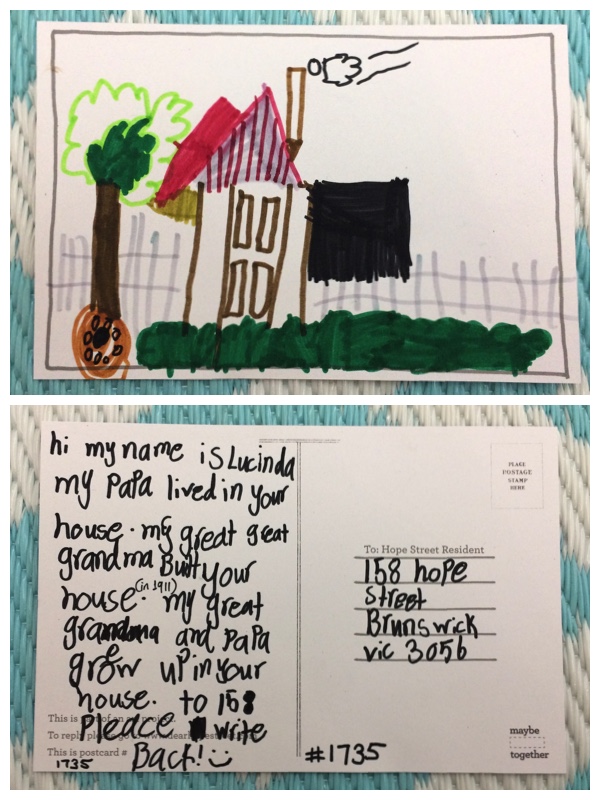 hi my name is Lucinda
my Papa lived in your
house. my great great
grandma Built your
house. (in 1911) my great
grandma and Papa
grow up in your
house. to 158
please write
Back!
This is part of an art project.
To reply please go to www.dear
This is postcard #
1735
PLACE
POSTAGE
STAMP
HERE
To: Hope Street Resident
158 hope
street
Brunswick
vic 3056
#1735
maybe
together